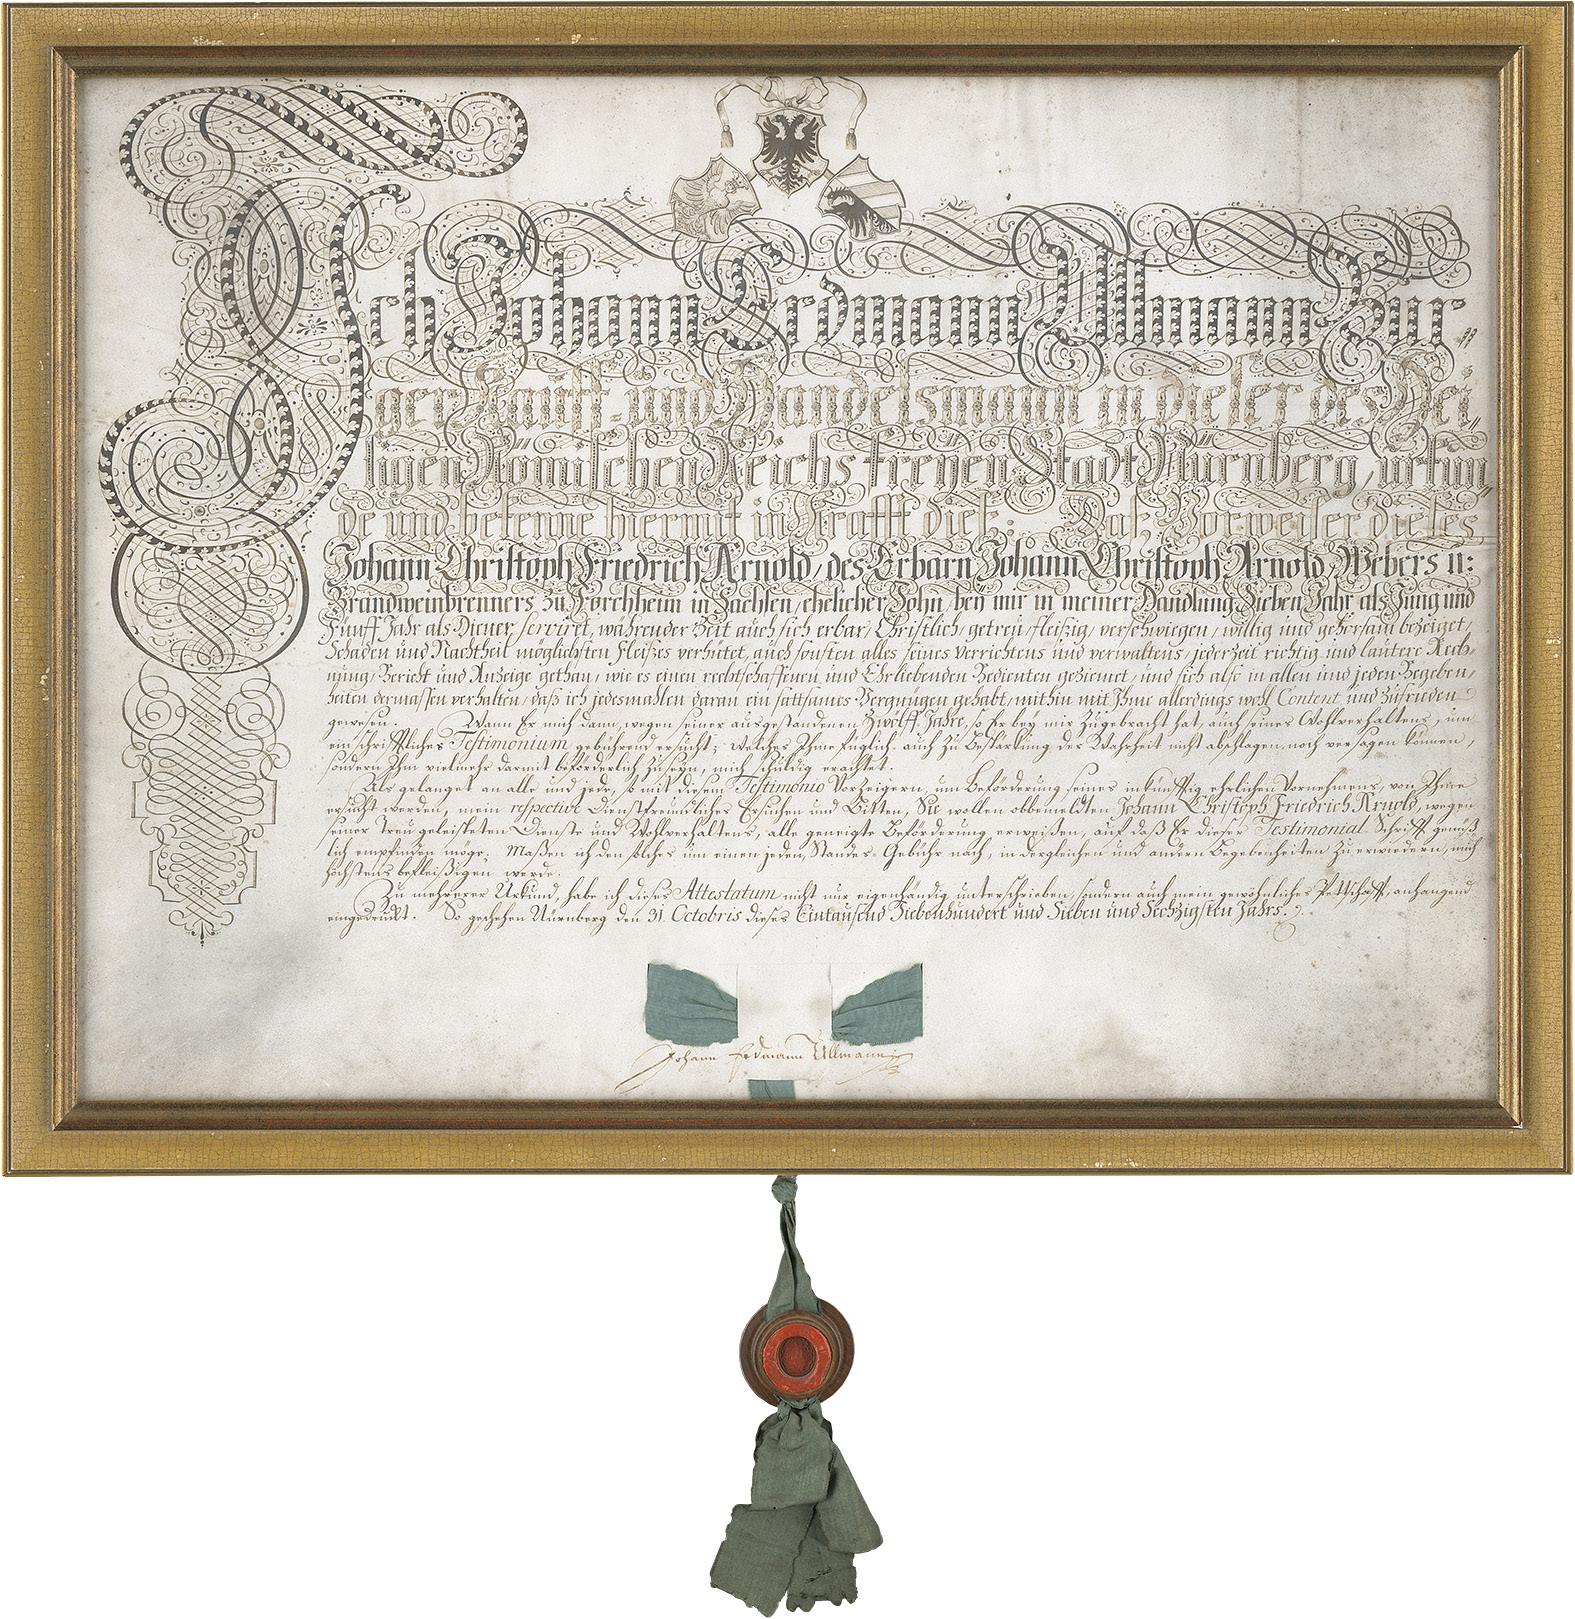 Ich Johann Erdmann Ullmann Bur-
ger Kauff- und Handelsmann in dieser des Hei-
ligen Römischen Reichs freyen Stadt Nürnberg, urkun-
de und bekenne hiermit in Krafft dies: Daß Vorweiser dieses
Johann Christoph Friedrich Arnold, des Erbarn Johann Christoph Arnold, Webers u:
Brandweinbrenners zu Forchheim in Sachsen, ehelicher Sohn, bey mir in meiner Handlung Sieben Jahr als Jung und
Fünff Jahr als Diener serviret, währender Zeit auch sich erbar, Christlich, getreu, fleißig, verschwiegen, willig und gehorsam bezeiget,
Schaden und Nachtheil möglichsten Fleißes verhütet, auch sonsten alles seines Verrichtens und verwaltens, jederzeit richtig und lautere Rech-
nung, Bericht und Anzeige gethan, wie es einen rechtschaffenen und Ehrliebenden Bedienten geziemet, und sich also in allen und jeden Begeben-
heiten dermassen verhalten, daß ich jedesmahlen daran ein sattsames Vergnügen gehabt, mithin mit Ihme allerdings wohl Content und zufrieden
gewesen. Wann Er mich dann, wegen seiner ausgestandenen Zwölff Jahre, so Er bey mir zugebracht hat, auch seines Wohlverhaltens, um
ein schrifftliches Testimonium gebührend ersucht; welches Ihme füglich auch zu Bestärkung der Wahrheit nicht abschlagen, noch versagen können,
sondern Ihm vielmehr darmit beförderlich zu seyn, mich schuldig erachtet.
Als gelanget an alle und jede, so mit diesem Testimonio Vorzeigern, um Beförderung seines in künfftig ehrlichen Vornehmens, von Ihme
ersucht werden, mein respective Dienstfreundliches Ersuchen und Bitten, Sie wollen obbemeldten Johann Christoph Friedrich Arnold, wegen
seiner Treu geleisteten Dienste und Wohlverhaltens, alle geneigte Beförderung erweisen, auf daß Er dieser Testimonial Schrifft genüß-
lich empfinden möge, Maßen ich den solches um einen jeden, Standes-Gebühr nach, in dergleichen und andern Begebenheiten zu erwiedern, mich
höchstens befleißigen werde.
Zu mehrerer Urkund, habe ich dieses Attestatum nicht nur eigenhändig unterschrieben, sondern auch mein gewöhnliches Pettschafft, anhangend
eingedruckt. So geschehen Nürnberg den 31 Octobris dieses Eintausend Siebenhundert und Sieben und Sechzigsten Jahrs.
Johann Erdmann Ullmann